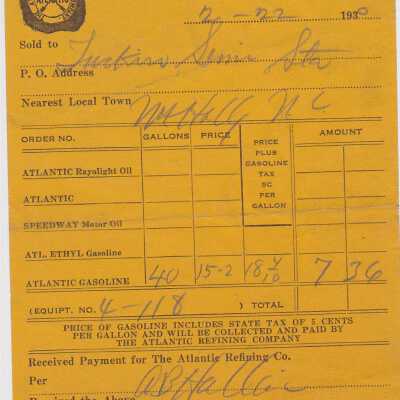 ATLANTIC
2-22 1930
Sold to Turkins Servic Sta
P. O. Address
Nearest Local Town Mt Holly N C
ORDER NO. GALLONS PRICE PRICE PLUS GASOLINE TAX 5C PER GALLON AMOUNT
ATLANTIC Rayolight Oil
ATLANTIC
SPEEDWAY Motor Oil
ATL. ETHYL Gasoline
ATLANTIC GASOLINE 40 15-2 18 4/10 7 36
(EQUIPT. NO. 4-118 ) TOTAL
PRICE OF GASOLINE INCLUDES STATE TAX OF 5 CENTS
PER GALLON AND WILL BE COLLECTED AND PAID BY
THE ATLANTIC REFINING COMPANY
Received Payment for The Atlantic Refining Co.
Per
Received the Above